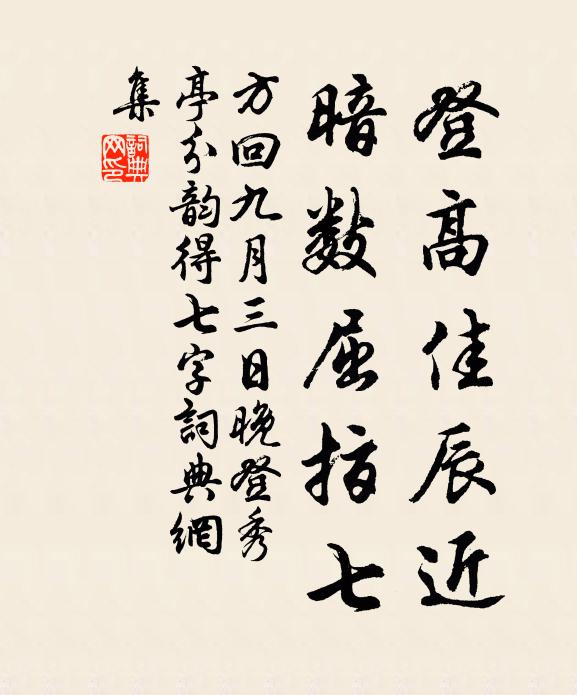 登高佳辰近
暗數屈指七
方回九月三日晚登秀
亭分韵得七字詞典網
集
詞典網印